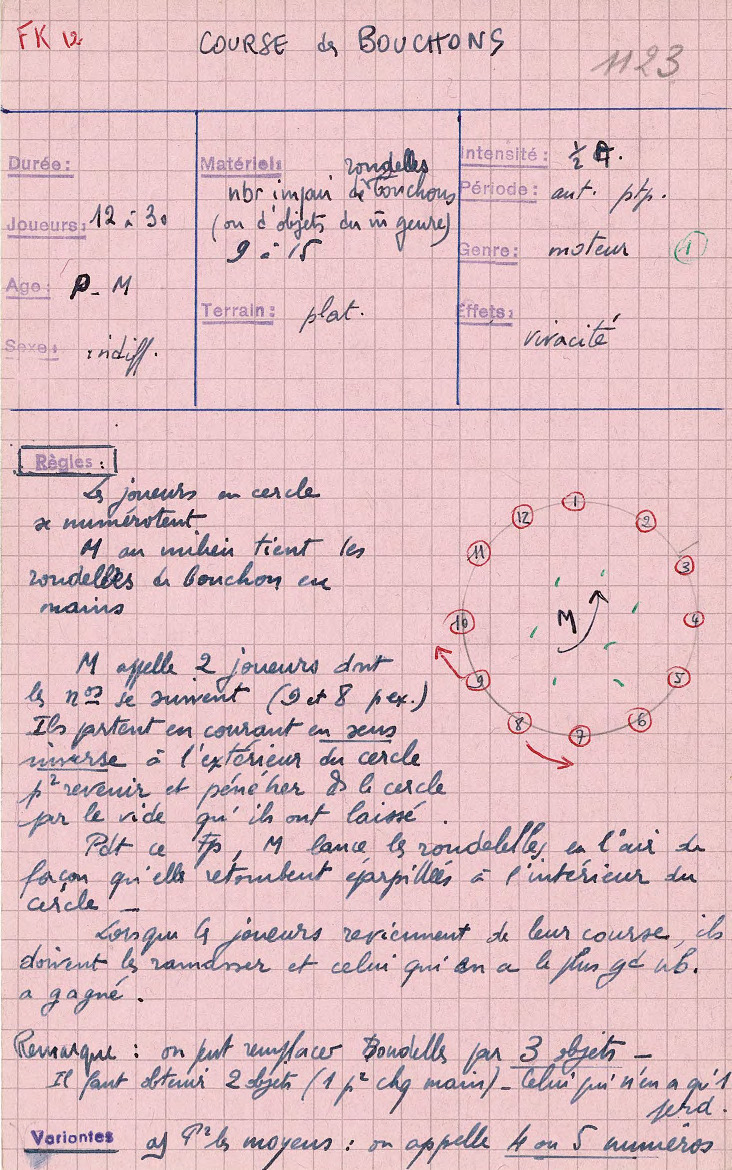 FK 12
COURSE des BOUCHONS
1123
Durée :
Joueurs : 12 à 30
Age : P - M
Sexe : indiff.
Matériel : rondelles
nbr impair de bouchons
(ou d'objets du m̄ genre)
9 à 15
Terrain : plat.
Intensité : ½
Période : aut. ptp.
Genre : moteur 1
Effets :
vivacité
Règles :
Les joueurs en cercle
se numérotent
M au milieu tient les
rondelles de bouchon en
mains
1
2
3
4
5
6
7
8
9
10
11
12
M
M appelle 2 joueurs dont
les nos se suivent (9 et 8 p ex.)
Ils partent en courant en sens
inverse à l'extérieur du cercle
pr revenir et pénétrer ds le cercle
par le vide qu'ils ont laissé.
Pdt ce Tp, M lance les rondelles en l'air de
façon qu'elles retombent éparpillées à l'intérieur du
cercle _
Lorsque les joueurs reviennent de leur course, ils
doivent les ramasser et celui qui en a le plus gd nb.
a gagné.
Remarque : on peut remplacer rondelles par 3 objets _
Il faut obtenir 2 objets (1 pr chq main) _ Celui qui n'en a qu'1
perd.
Variantes a) pr les moyens : on appelle 4 ou 5 numéros